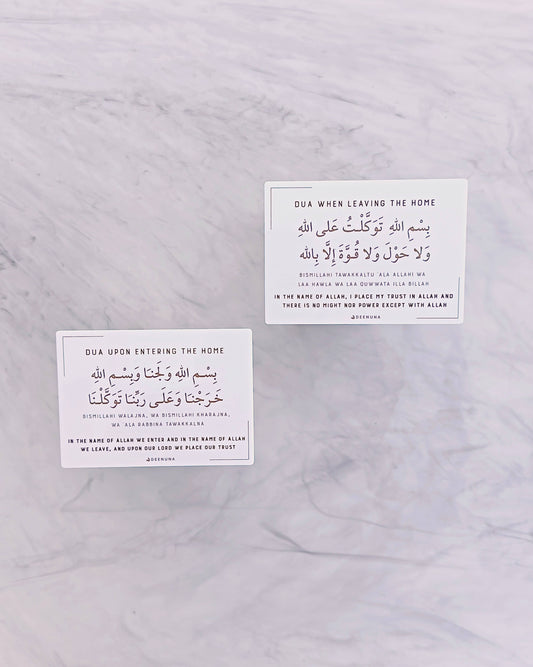 DUA WHEN LEAVING THE HOME
بِسْمِ اللهِ تَوَكَّلْتُ عَلَى اللهِ
وَلا حَوْلَ وَلا قُوَّةَ إِلَّا بِالله
BISMILLAHI TAWAKKALTU 'ALA ALLAHI WA
LAA HAWLA WA LAA QUWWATA ILLA BILLAH
IN THE NAME OF ALLAH, I PLACE MY TRUST IN ALLAH AND
THERE IS NO MIGHT NOR POWER EXCEPT WITH ALLAH
DEENUNA
DUA UPON ENTERING THE HOME
بِسْمِ اللهِ وَلَجْنَا وَبِسْمِ اللهِ
خَرَجْنَا وَعَلَى رَبِّنَا تَوَكَّلْنَا
BISMILLAHI WALAJNA, WA BISMILLAHI KHARAJNA,
WA 'ALA RABBINA TAWAKKALNA
IN THE NAME OF ALLAH WE ENTER AND IN THE NAME OF ALLAH
WE LEAVE, AND UPON OUR LORD WE PLACE OUR TRUST
DEENUNA